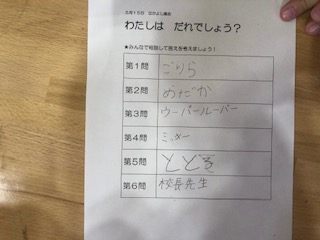 5月15日 なかよし集会
わたしは だれでしょう?
★みんなで相談して答えを考えましょう!
第1問 ごりら
第2問 めだか
第3問 ウーパールーパー
第4問 ミッキー
第5問 とど
第6問 校長先生